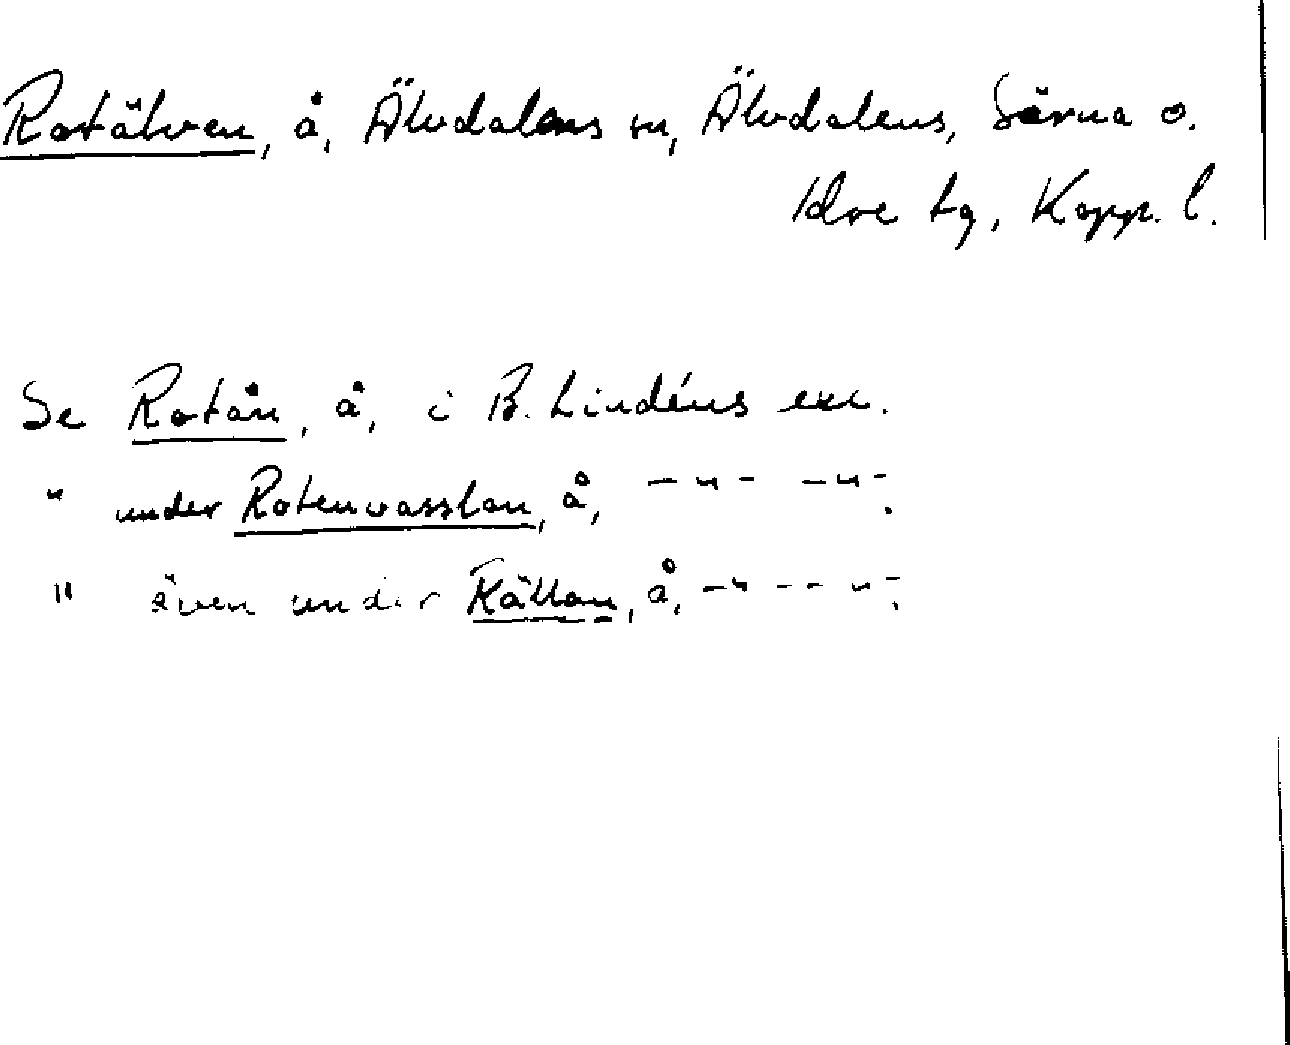 Rotälven, å, Älvdalens sn, Älvdalens, Särna o.
Idre tg, Kopp. l.
Se Rotån, å, i B. Lindéns exc.
" under Rotenvasslan, å, — " — — " —.
" även under Källan, å, — " — — " —.